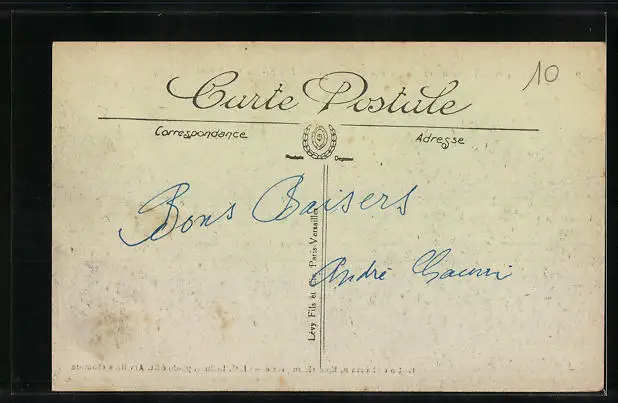 10
Carte Postale
Correspondance Adresse
Modèle Déposé
Bons Baisers
André
Lévy Fils et Cie, Paris-Versailles